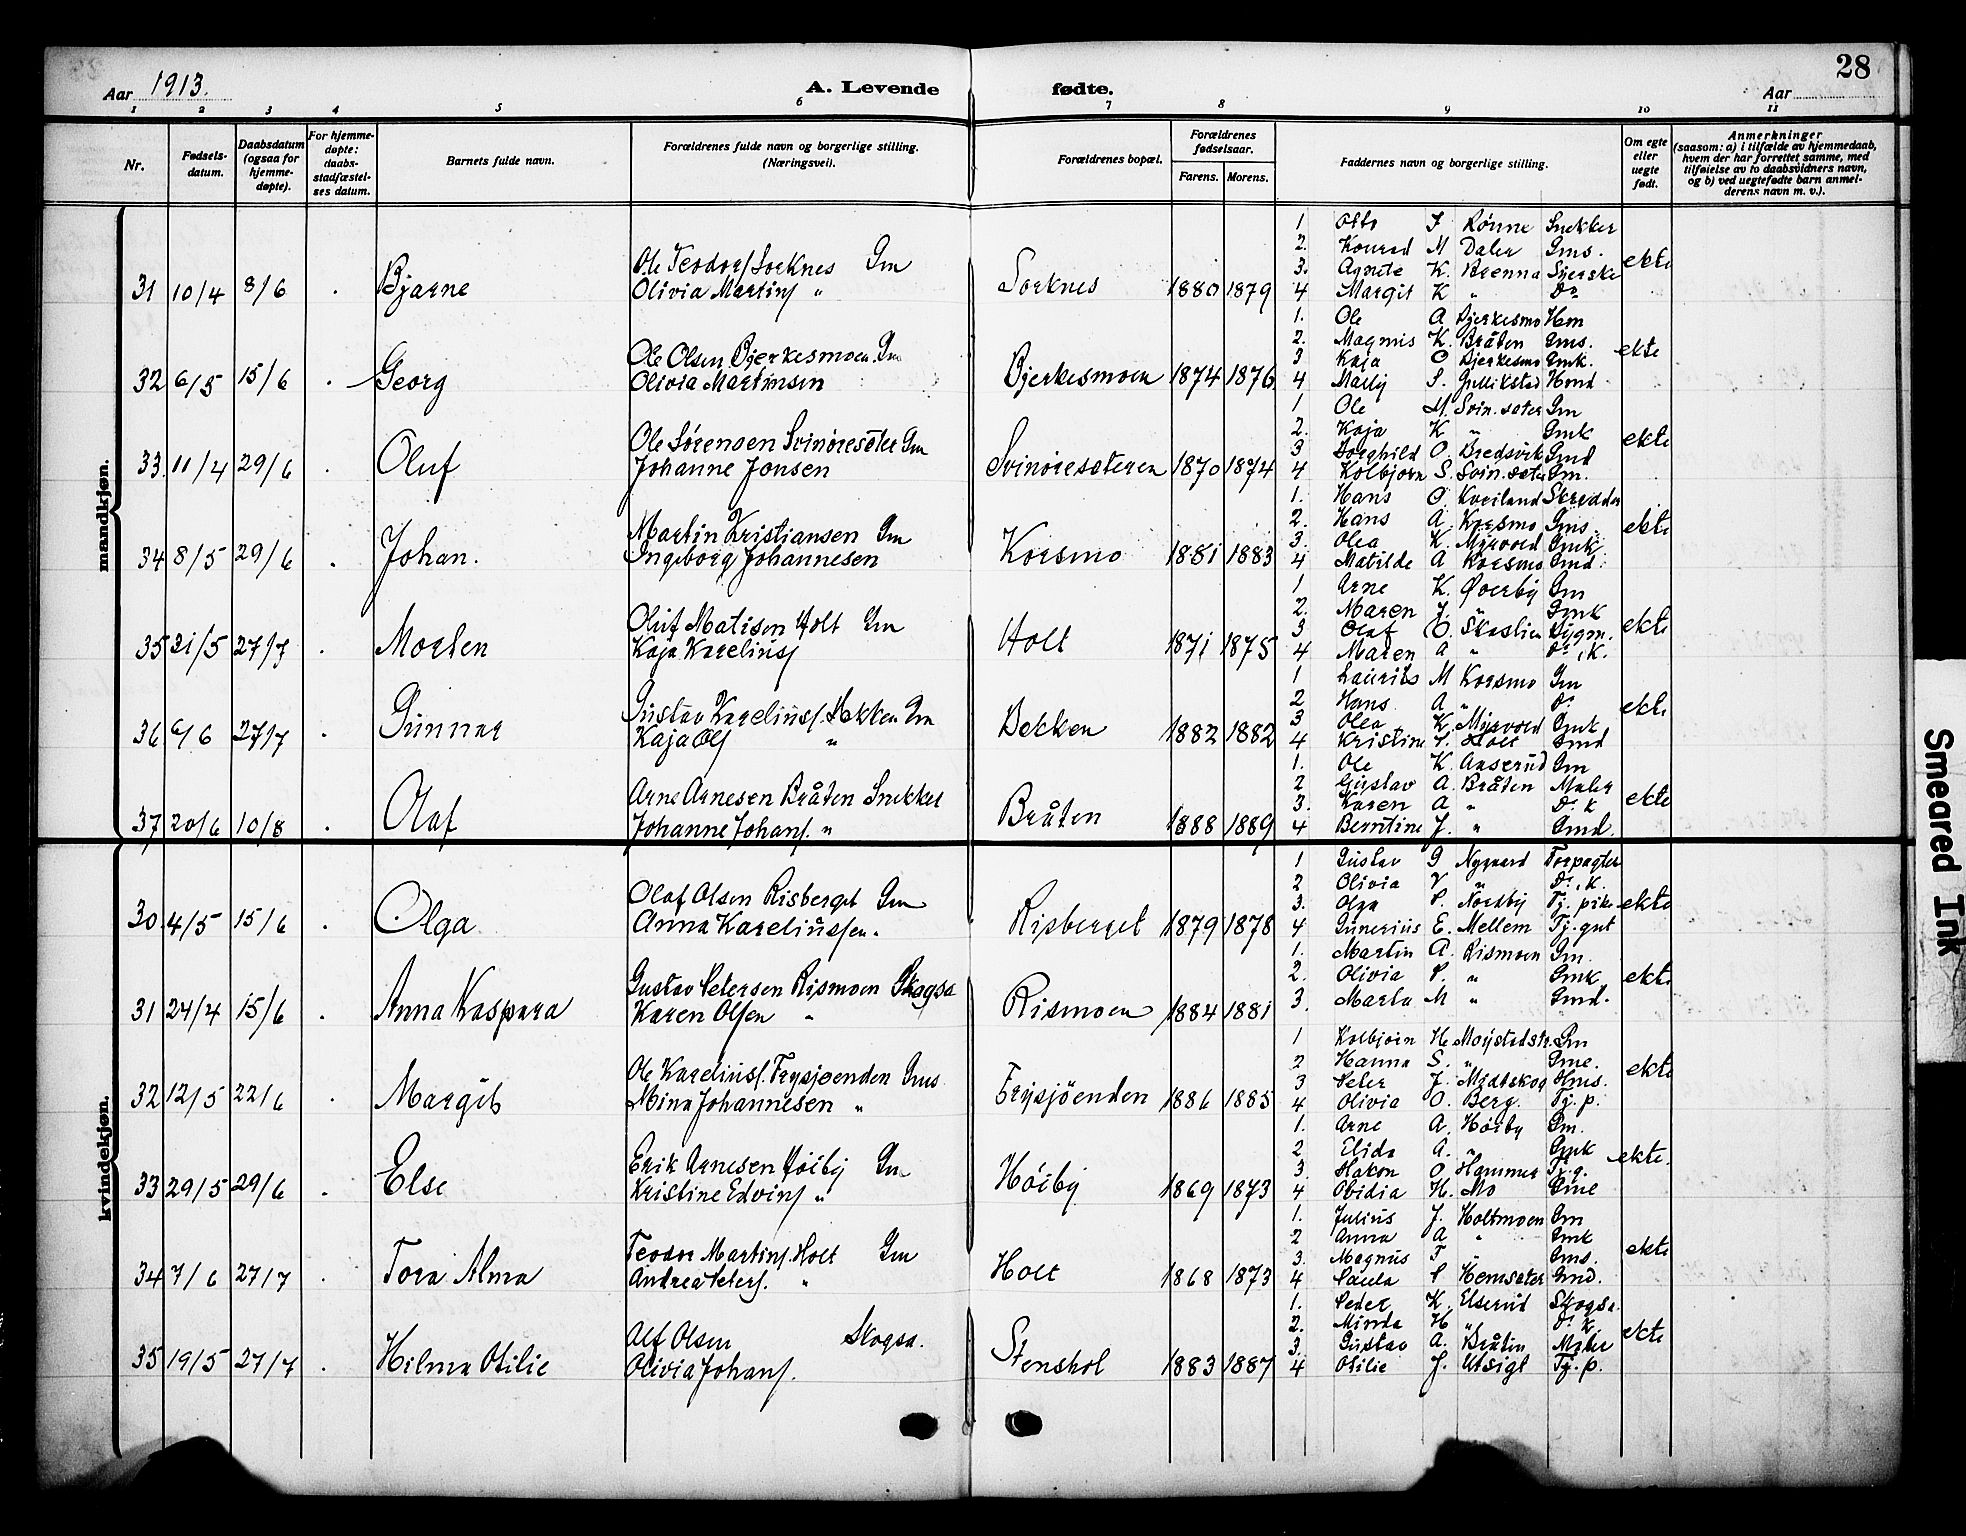 28
Aar 1913. A. Levende fødte. Aar
1 2 3 4 5 6 7 8 9 10 11
Nr. Fødsels-datum. Daabsdatum (ogsaa for hjemme-døpte). For hjemme-døpte: daabs-stadfæstel-ses datum. Barnets fulde navn. Forældrenes fulde navn og borgerlige stilling. (Næringsvei). Forældrenes bopæl. Forældrenes fødselsaar. Farens. Morens. Faddernes navn og borgerlige stilling. Om egte eller uegte født. Anmerkninger (saasom: a) i tilfælde av hjemmedaab, hvem der har forrettet samme, med tilføielse av to daabsvidners navn, og b) ved uegtefødte barn anmel-derens navn m. v.).
mandkjøn.
31 10/4 8/6 Bjarne Ole Teodors Sorknes Gm Sorknes 1880 1879 ekte
Olivia Martins "
1. Otto J Rönne Snekker
2. Konrad M Daler Gms.
3. Agnete K. Brenna Syerske
4 Margit K " Do
32 6/5 15/6 Georg Ole Olsen Bjerkesmoen Gm Bjerkesmoen 1874 1876 ekte
Olivia Martinsen
1. Ole A Bjerkesmo Hm
2. Magnus K. Bråten Gms.
3 Kaja O Bjerkesmo Gmk.
4 Marly S. Gullikstad Hmd
33. 11/4 29/6 Oluf Ole Sørensen Svinøresæter Gm Svinøresæteren 1870 1874 ekte
Johanne Jonsen
1 Ole M. Svin.sæter Gm
2. Kaja K " Gmk
3 Borghild O. Bredsvik Gmd
4 Kolbjørn S. Svin.sæter Gm.
34 8/5 29/6 Johan. Martin Kristiansen Gm Korsmo 1881 1883 ekte
Ingeborg Johannesen
1. Hans O. Kveiland Skredder
2. Hans A. Korsmo Gms.
3. Olea K. Myrvold Gmk
4 Matilde A Korsmo Gmd.
35 31/5 27/7 Morten Oluf Matisen Holt Gm Holt 1871 1875 ekte
Kaja Karelius
1 Arne K. Øverby Gm
2. Maren J. " Gmk
3 Olaf O. Skaslien Bygm.
4 Maren A " Do. K.
36 6/6 27/7 Gunnar Gustav Karelius. Bekken Gm Bekken 1882 1882 ekte
Kaja Ols "
1 Laurits M Korsmo Gm
2 Hans. A " Do
3 Olea K. Myrvold Gmk
4 Kristine J. Holt Gmd
37 20/6 10/8 Olaf Arne Arnesen Bråten Snekker Bråten 1888 1889 ekte
Johanne Johans. "
1. Ole K. Aaserud Gm
2 Gustav A. Bråten Maler
3. Karen A " Do. K
4 Berntine J. " Gmd.
kvindekjøn.
30. 4/5 15/6 Olga Olaf Olsen Risberget Gm Risberget 1879 1878 ekte
Anna Kareliussen.
1 Gustav G Nygaard Forpagter
2 Olivia " Do. K.
3. Olga P. Nordby Tj. pike
4 Gunerius E. Mellem Tj. gut
31 24/4 15/6 Anna Kaspara Gustav Petersen Rismoen Skogsa Rismoen 1884 1881 ekte
Karen Olsen "
1. Martin A. Rismoen Gm.
2. Olivia P. " Gmk
3. Marta M " Gmd.
32 12/5 22/6 Margit Ole Karelius. Frysjøenden Gms Frysjöenden 1886 1885 ekte
Mina Johannesen "
1 Kolbjörn H. Gm
2 Hanna S. " Gme.
3 Peter J. Midtskog Hms.
4 Olivia O. Berg. Tj. p.
33 29/5 29/6 Else Erik Arnesen Höiby Gm Höiby 1869 1873 ekte.
Kristine Edvins "
1. Arne A. Höiby Gm.
2 Elida A. " Gmk
3. Hakon O. Hammer Tj. g.
4 Obidia H. Mo Gme
34 7/6 27/7 Tora Alma Teodor Martins. Holt Gm Holt 1868 1873 ekte
Andrea Peters. "
1. Julius J. Holtmoen Gm
2 Anna A " Gmk
3. Magnus F " Gms.
4 Paula P Hemsæter Gmd.
35 19/5 27/7 Hilma Otilie Alf Olsen Skogsa. Stenshol 1883 1887 ekte
Olivia Johans.
1. Peder K. Elserud Skogsa.
2. Minda H " Do. K.
3. Gustav A. Bråten Maler
4 Otilie J. Utsigt Tj. p.
Smeared Ink